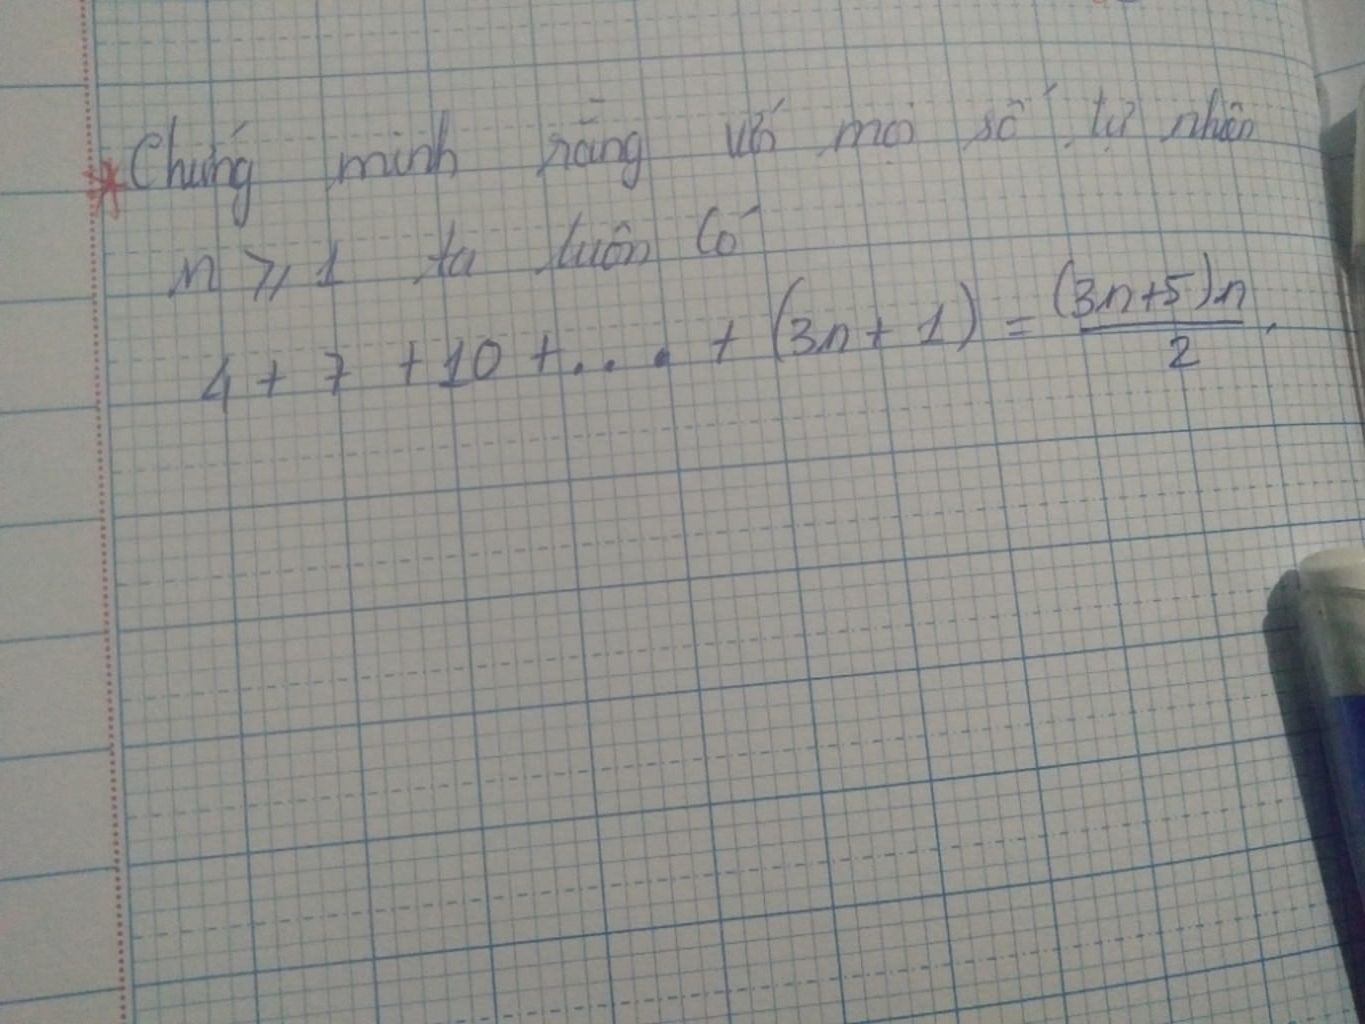 * Chứng minh rằng với mọi số tự nhiên
n ⩾ 1 ta luôn có
4 + 7 + 10 + .... + (3n + 1) = (3n+5)n / 2 .